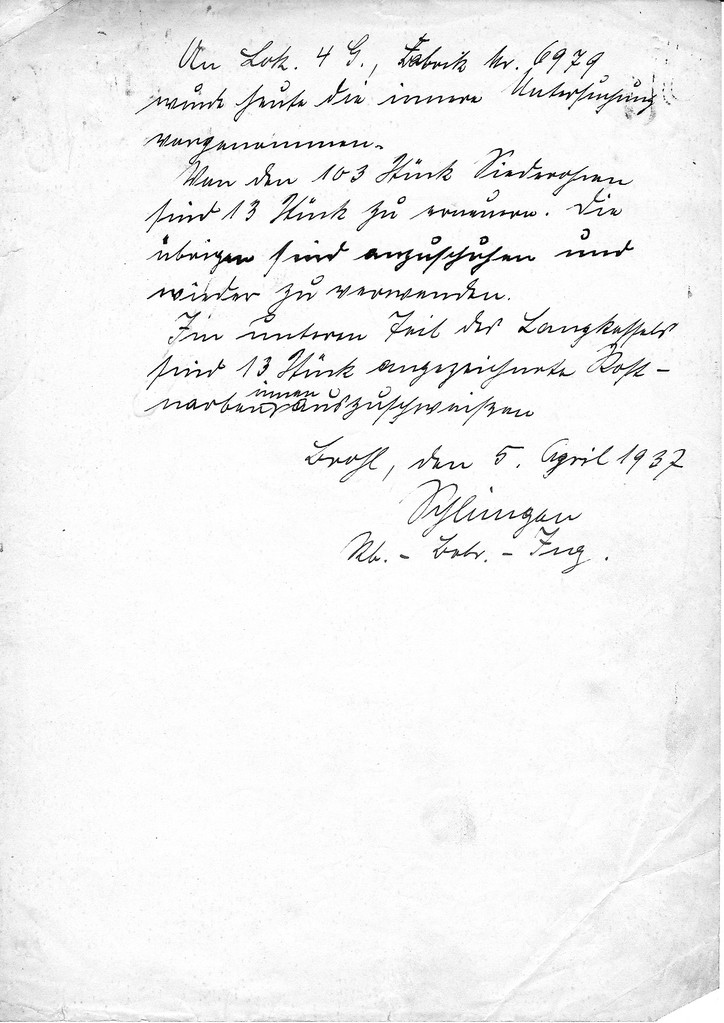 An Lok. 4 G., Fabrik Nr. 6979
wurde heute die innere Untersuchung
vorgenommen.
Von den 103 Stück Siederohren
sind 13 Stück zu erneuern. Die
übrigen sind anzuschuhen und
wieder zu verwenden.
Im unteren Teil des Langkessels
sind 13 Stück angezeichnete Rost-
narben innen auszuschweißen
Brohl, den 5. April 1937
Kb. - Betr. - Ing.